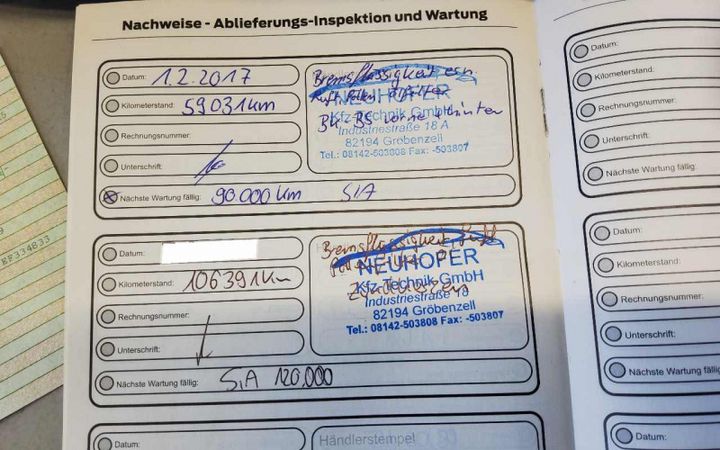 Nachweise - Ablieferungs-Inspektion und Wartung
Datum: 1.2.2017
Kilometerstand: 59031km
Rechnungsnummer:
Unterschrift:
Nächste Wartung fällig: 90.000 km SIA
Bremsflüssigkeit ern
Luft Pollen
NEUHOFER
Kfz-Technik GmbH
BK-BS vorne + hinten
Industriestraße 18 A
82194 Gröbenzell
Tel.: 08142-503808 Fax: -503807
Datum:
Kilometerstand: 106391km
Rechnungsnummer:
Unterschrift:
Nächste Wartung fällig: SiA 120.000
Bremsflüssigkeit Luft
NEUHOFER
Kfz-Technik GmbH
Zündkerzen
Industriestraße 18
82194 Gröbenzell
Tel.: 08142-503808 Fax: -503807
Datum:
Händlerstempel
Datum:
Kilometerstand:
Rechnungsnummer:
Unterschrift:
Nächste Wartung fällig:
Datum:
Kilometerstand:
Rechnungsnummer:
Unterschrift:
Nächste Wartung fällig:
Datum:
EF334833